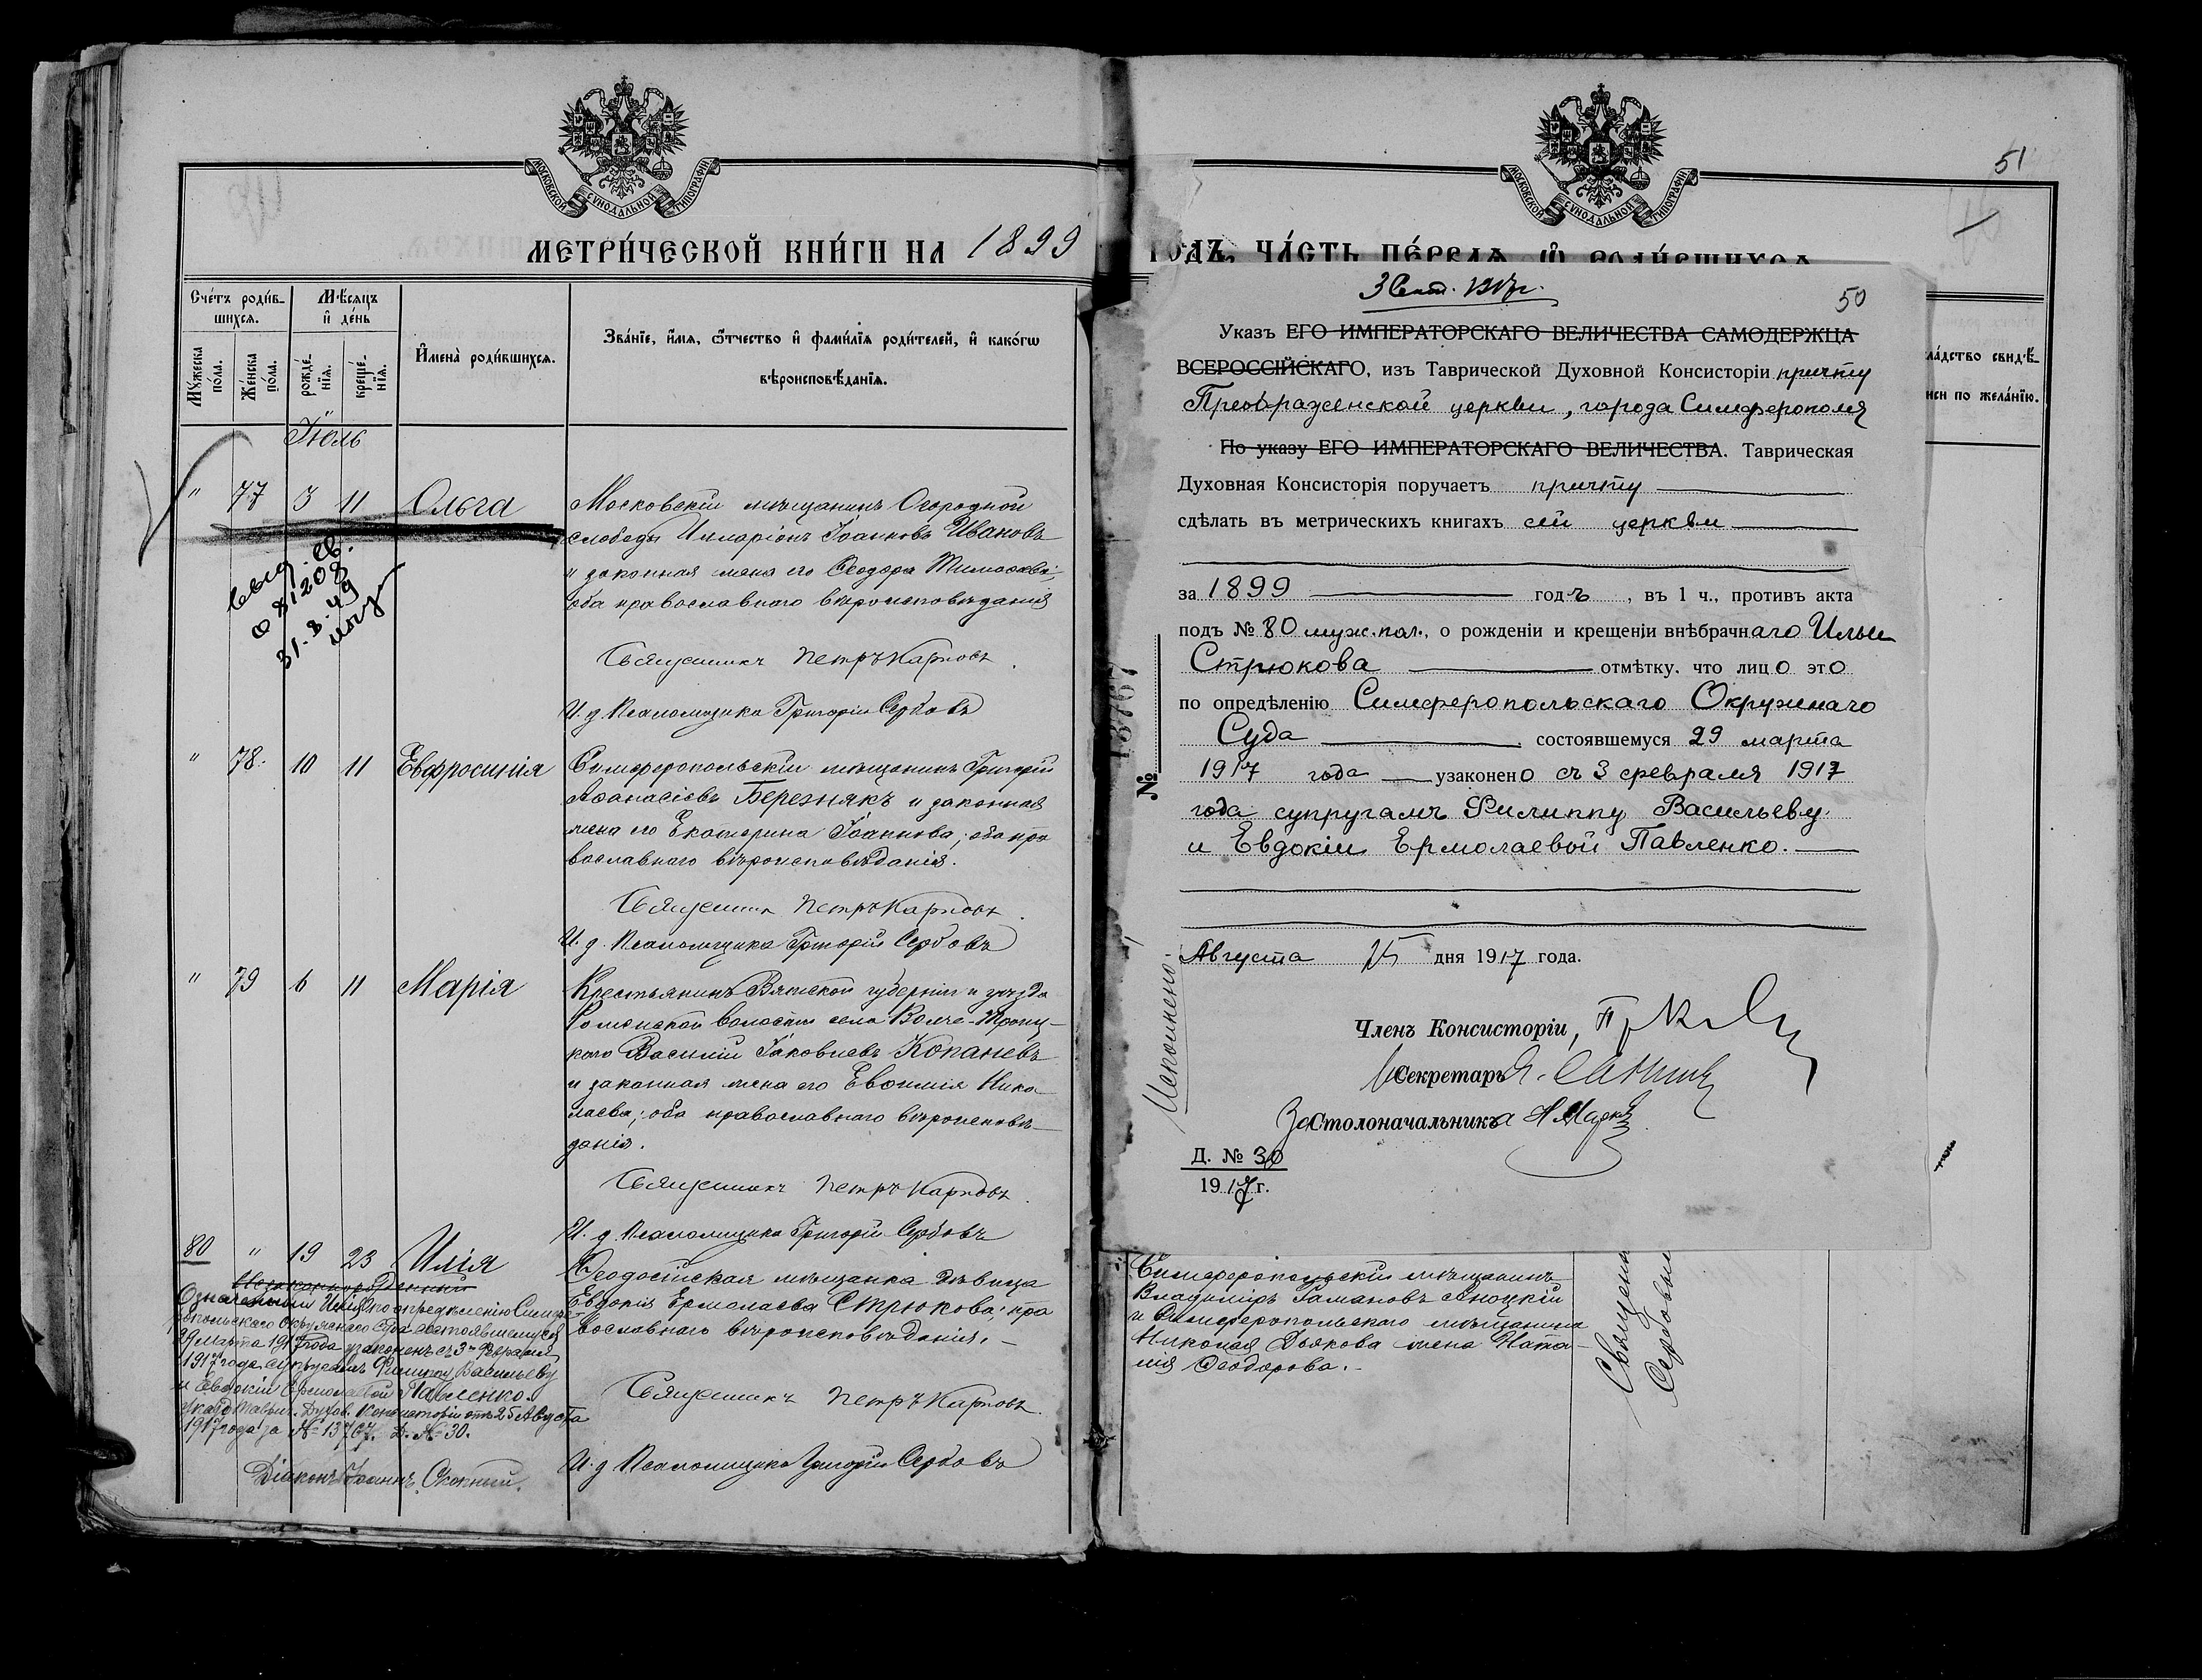 МОСКОВСКОЙ СѴНОДАЛЬНОЙ ТИПОГРАФІИ
МЕТРИ́ЧЕСКОЙ КНИ́ГИ НА 1899
Сче́тъ роди́в-
шихся.
Мѣ́сяцъ
и҆ де́нь
Мꙋ́жеска
по́ла.
Же́нска
по́ла.
рожде́-
нїя.
креще́-
нїя.
И҆мена̀ роди́вшихся.
Зва́нїе, и҆́мя, ѻ҆́тчество и҆ фами́лїя роди́телей, и҆ како́гѡ
вѣроисповѣ́данїя.
Іюль
" 77 3 11 Ольга
Московскій мѣщанинъ Огородной
слободы Илларіонъ Іоанновъ Ивановъ
и законная жена его Ѳеодора Тимоѳеева;
оба православнаго вѣроисповѣданія
Священникъ Петръ Карповъ.
И. д. Псаломщика Григорій Сербовъ
выд. св.
31.8.49
" 78. 10 11 Евфросинія
Симферопольскій мѣщанинъ Григорій
Аѳанасіевъ Березнякъ и законная
жена его Екатерина Іоаннова; оба пра
вославнаго вѣроисповѣданія.
Священникъ Петръ Карповъ.
И. д. Псаломщика Григорій Сербовъ
" 79 6 11 Марія
Крестьянинъ Вятской губерніи и уѣзда
волости села Волче-Троиц-
каго Василій Іаковлевъ Копаневъ
и законная жена его Евѳимія Нико-
лаева; оба православнаго вѣроисповѣ-
данія.
Священникъ Петръ Карповъ.
И. д. Псаломщика Григорій Сербовъ
80 " 19 23 Илія
Незаконнорожденный
Ѳеодосійская мѣщанка дѣвица
Евдокія Ермолаева Стрюкова; пра
вославнаго вѣроисповѣданія.
Священникъ Петръ Карповъ.
И. д. Псаломщика Григорій Сербовъ
Означенный Илія по опредѣленію Симфе-
ропольскаго Окружнаго Суда состоявшемуся
29 Марта 1917 года узаконенъ съ 3 Февраля
1917 года супругамъ Филиппу Васильеву
и Евдокіи Ермолаевой Павленко.
Указъ Таврич. Духов. Консисторіи отъ 25 Августа
1917 года за № 13767. Д. № 30.
Діаконъ Іоаннъ
МОСКОВСКОЙ СѴНОДАЛЬНОЙ ТИПОГРАФІИ
51
ГОДЪ, ЧА́СТЬ ПЕ́РВАЯ, Ѡ҆ РОДИ́ВШИХСЯ
3 Сент. 1917 г.
50
Указъ ЕГО ИМПЕРАТОРСКАГО ВЕЛИЧЕСТВА САМОДЕРЖЦА
ВСЕРОССІЙСКАГО, изъ Таврической Духовной Консисторіи причту
Преображенской церкви, города Симферополя
По указу ЕГО ИМПЕРАТОРСКАГО ВЕЛИЧЕСТВА. Таврическая
Духовная Консисторія поручаетъ причту
сдѣлать въ метрическихъ книгахъ сей церкви
за 1899 годъ, въ 1 ч., противъ акта
подъ № 80 муж. пол., о рожденіи и крещеніи внѣбрачнаго Ильи
Стрюкова отмѣтку, что лицо это
по опредѣленію Симферопольскаго Окружнаго
Суда состоявшемуся 29 марта
1917 года узаконено съ 3 февраля 1917
года супругамъ Филиппу Васильеву
и Евдокіи Ермолаевой Павленко.
Августа 25 дня 1917 года.
Членъ Консисторіи,
Секретарь
За Столоначальника
Д. № 30
1917 г.
№ 13767
Исполнено
Симферопольскій мѣщанинъ
Владиміръ
и Симферопольскаго мѣщанина
Николая Дьякова жена Ната-
лія Ѳеодорова.
Сербовъ